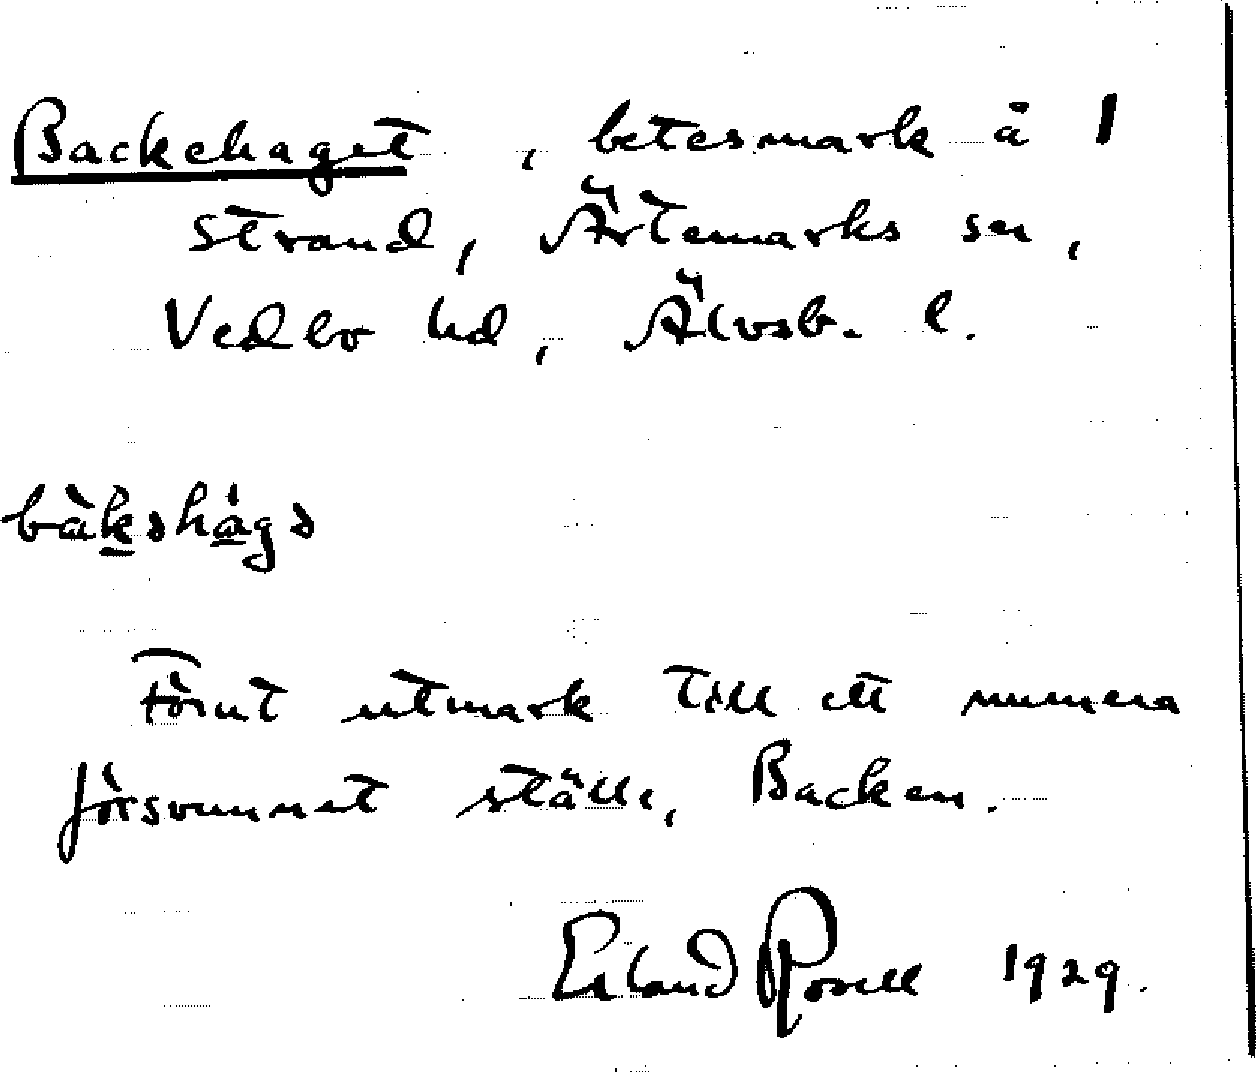 Backehaget, betesmark å 1
Strand, Ärtemarks sn,
Vedbo hd, Älvsb. l.
Förut utmark till ett numera
försvunnet ställe, Backen.
Erland Rosell 1929.